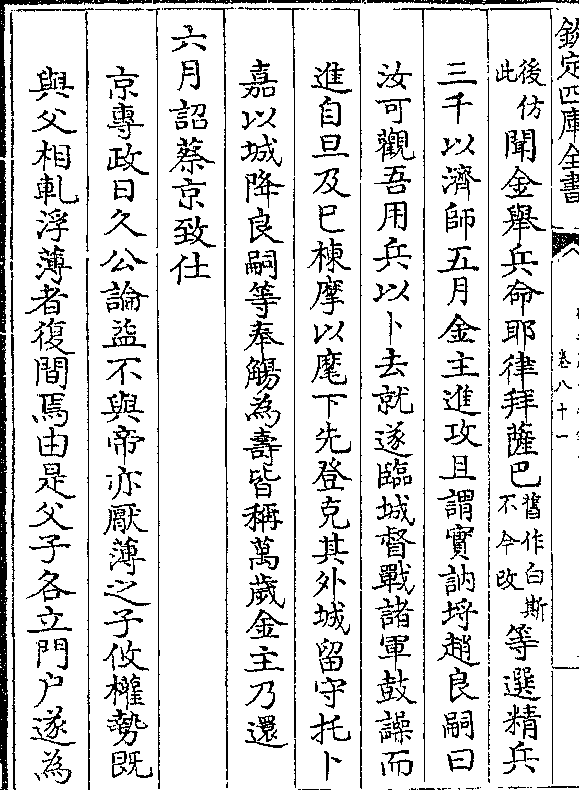 欽定四庫全書
卷八十一
後仿此聞金舉兵命耶律拜薩巴舊作白斯不今改等選精兵
三千以濟師五月金主進攻且謂實訥埒趙良嗣曰
汝可觀吾用兵以卜去就遂臨城督戰諸軍鼓譟而
進自旦及巳棟摩以麾下先登克其外城留守托卜
嘉以城降良嗣等奉觴為壽皆稱萬歲金主乃還
六月詔蔡京致仕
京專政日久公論益不與帝亦厭薄之子攸權勢既
與父相軋浮薄者復間焉由是父子各立門户遂為